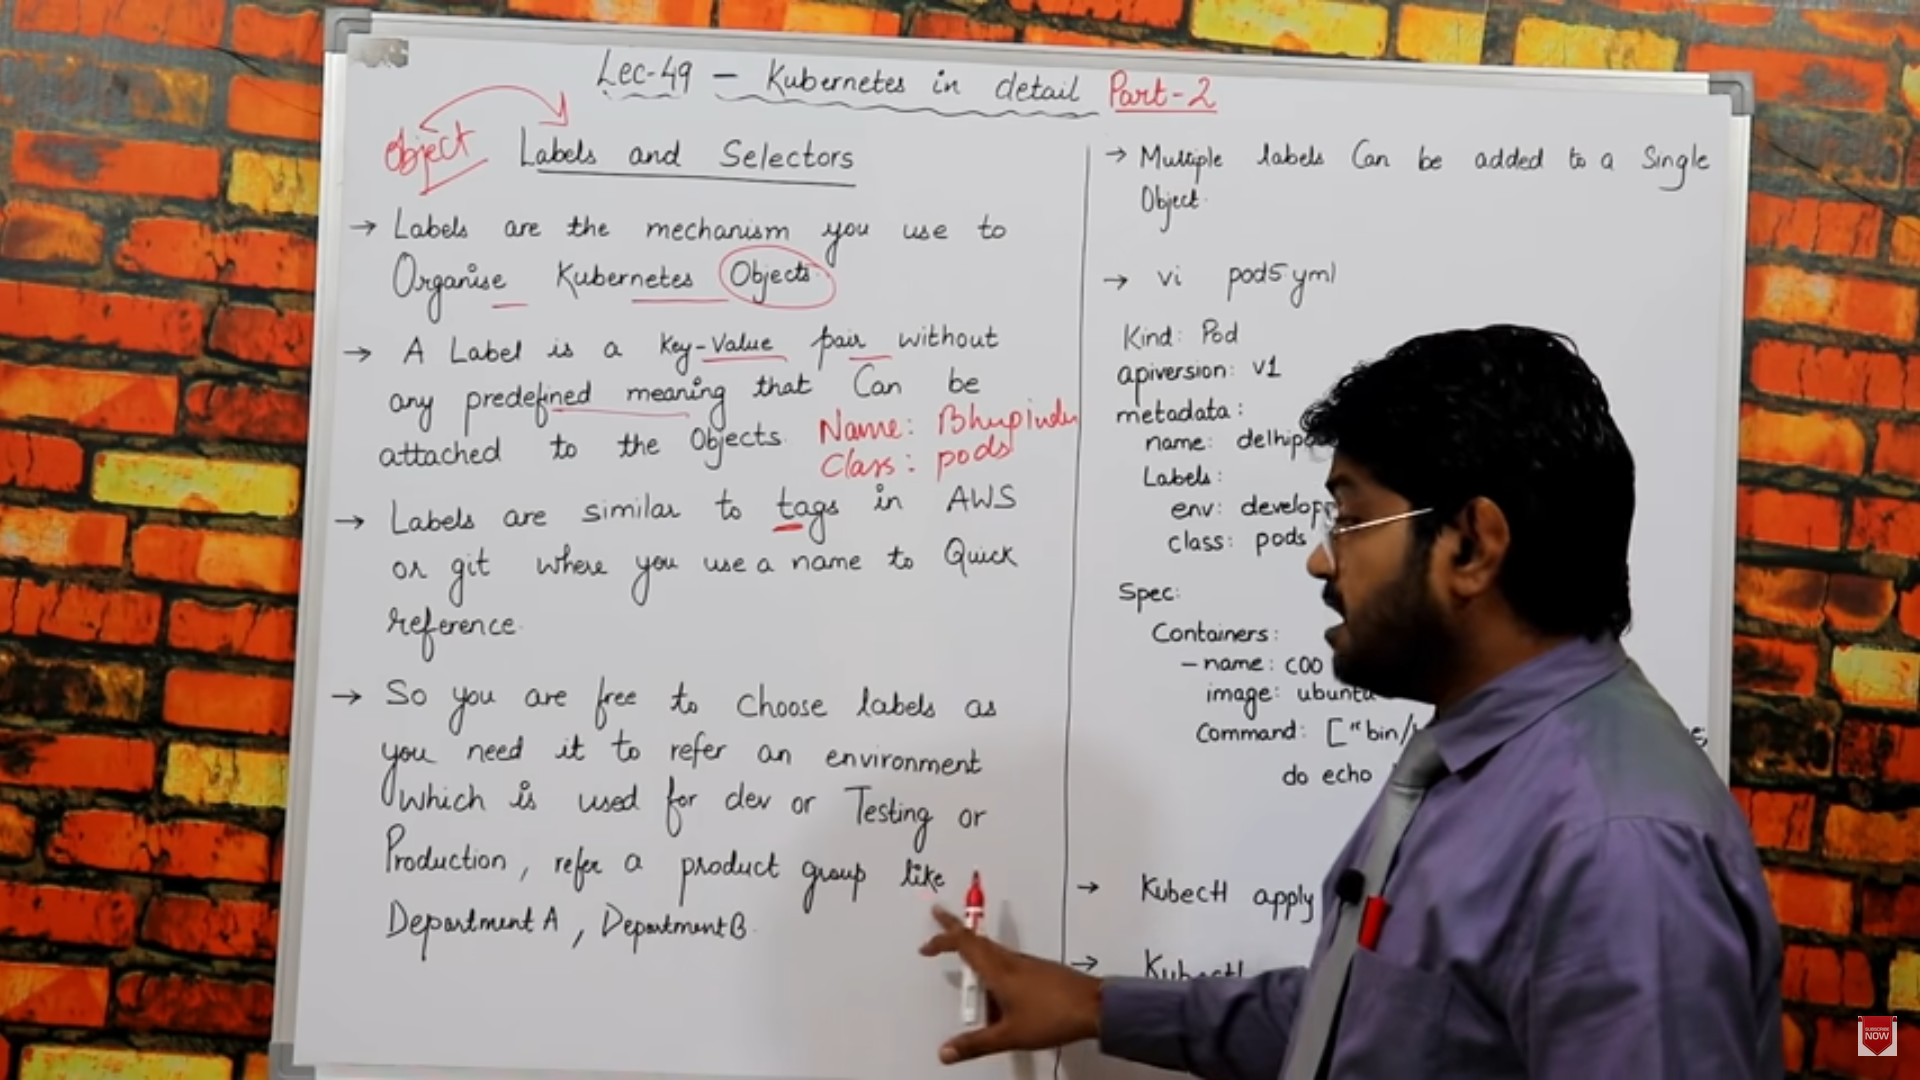 Lec-49 – Kubernetes in detail Part-2
Object Labels and Selectors
→ Labels are the mechanism you use to
Organise Kubernetes Objects.
→ A Label is a Key-Value pair without
any predefined meaning that Can be
attached to the Objects.
Name: Bhupinder
Class: pods
→ Labels are similar to tags in AWS
or git where you use a name to Quick
reference.
→ So you are free to choose labels as
you need it to refer an environment
which is used for dev or Testing or
Production, refer a product group like
Department A, Department B.
→ Multiple labels Can be added to a Single
Object.
→ vi pod5.yml
Kind: Pod
apiversion: v1
metadata:
name: delhipo
Labels:
env: develop
class: pods
Spec:
Containers:
– name: c00
image: ubuntu
Command: ["bin/
do echo
→ Kubectl apply
→ Kubectl
SUBSCRIBE
NOW